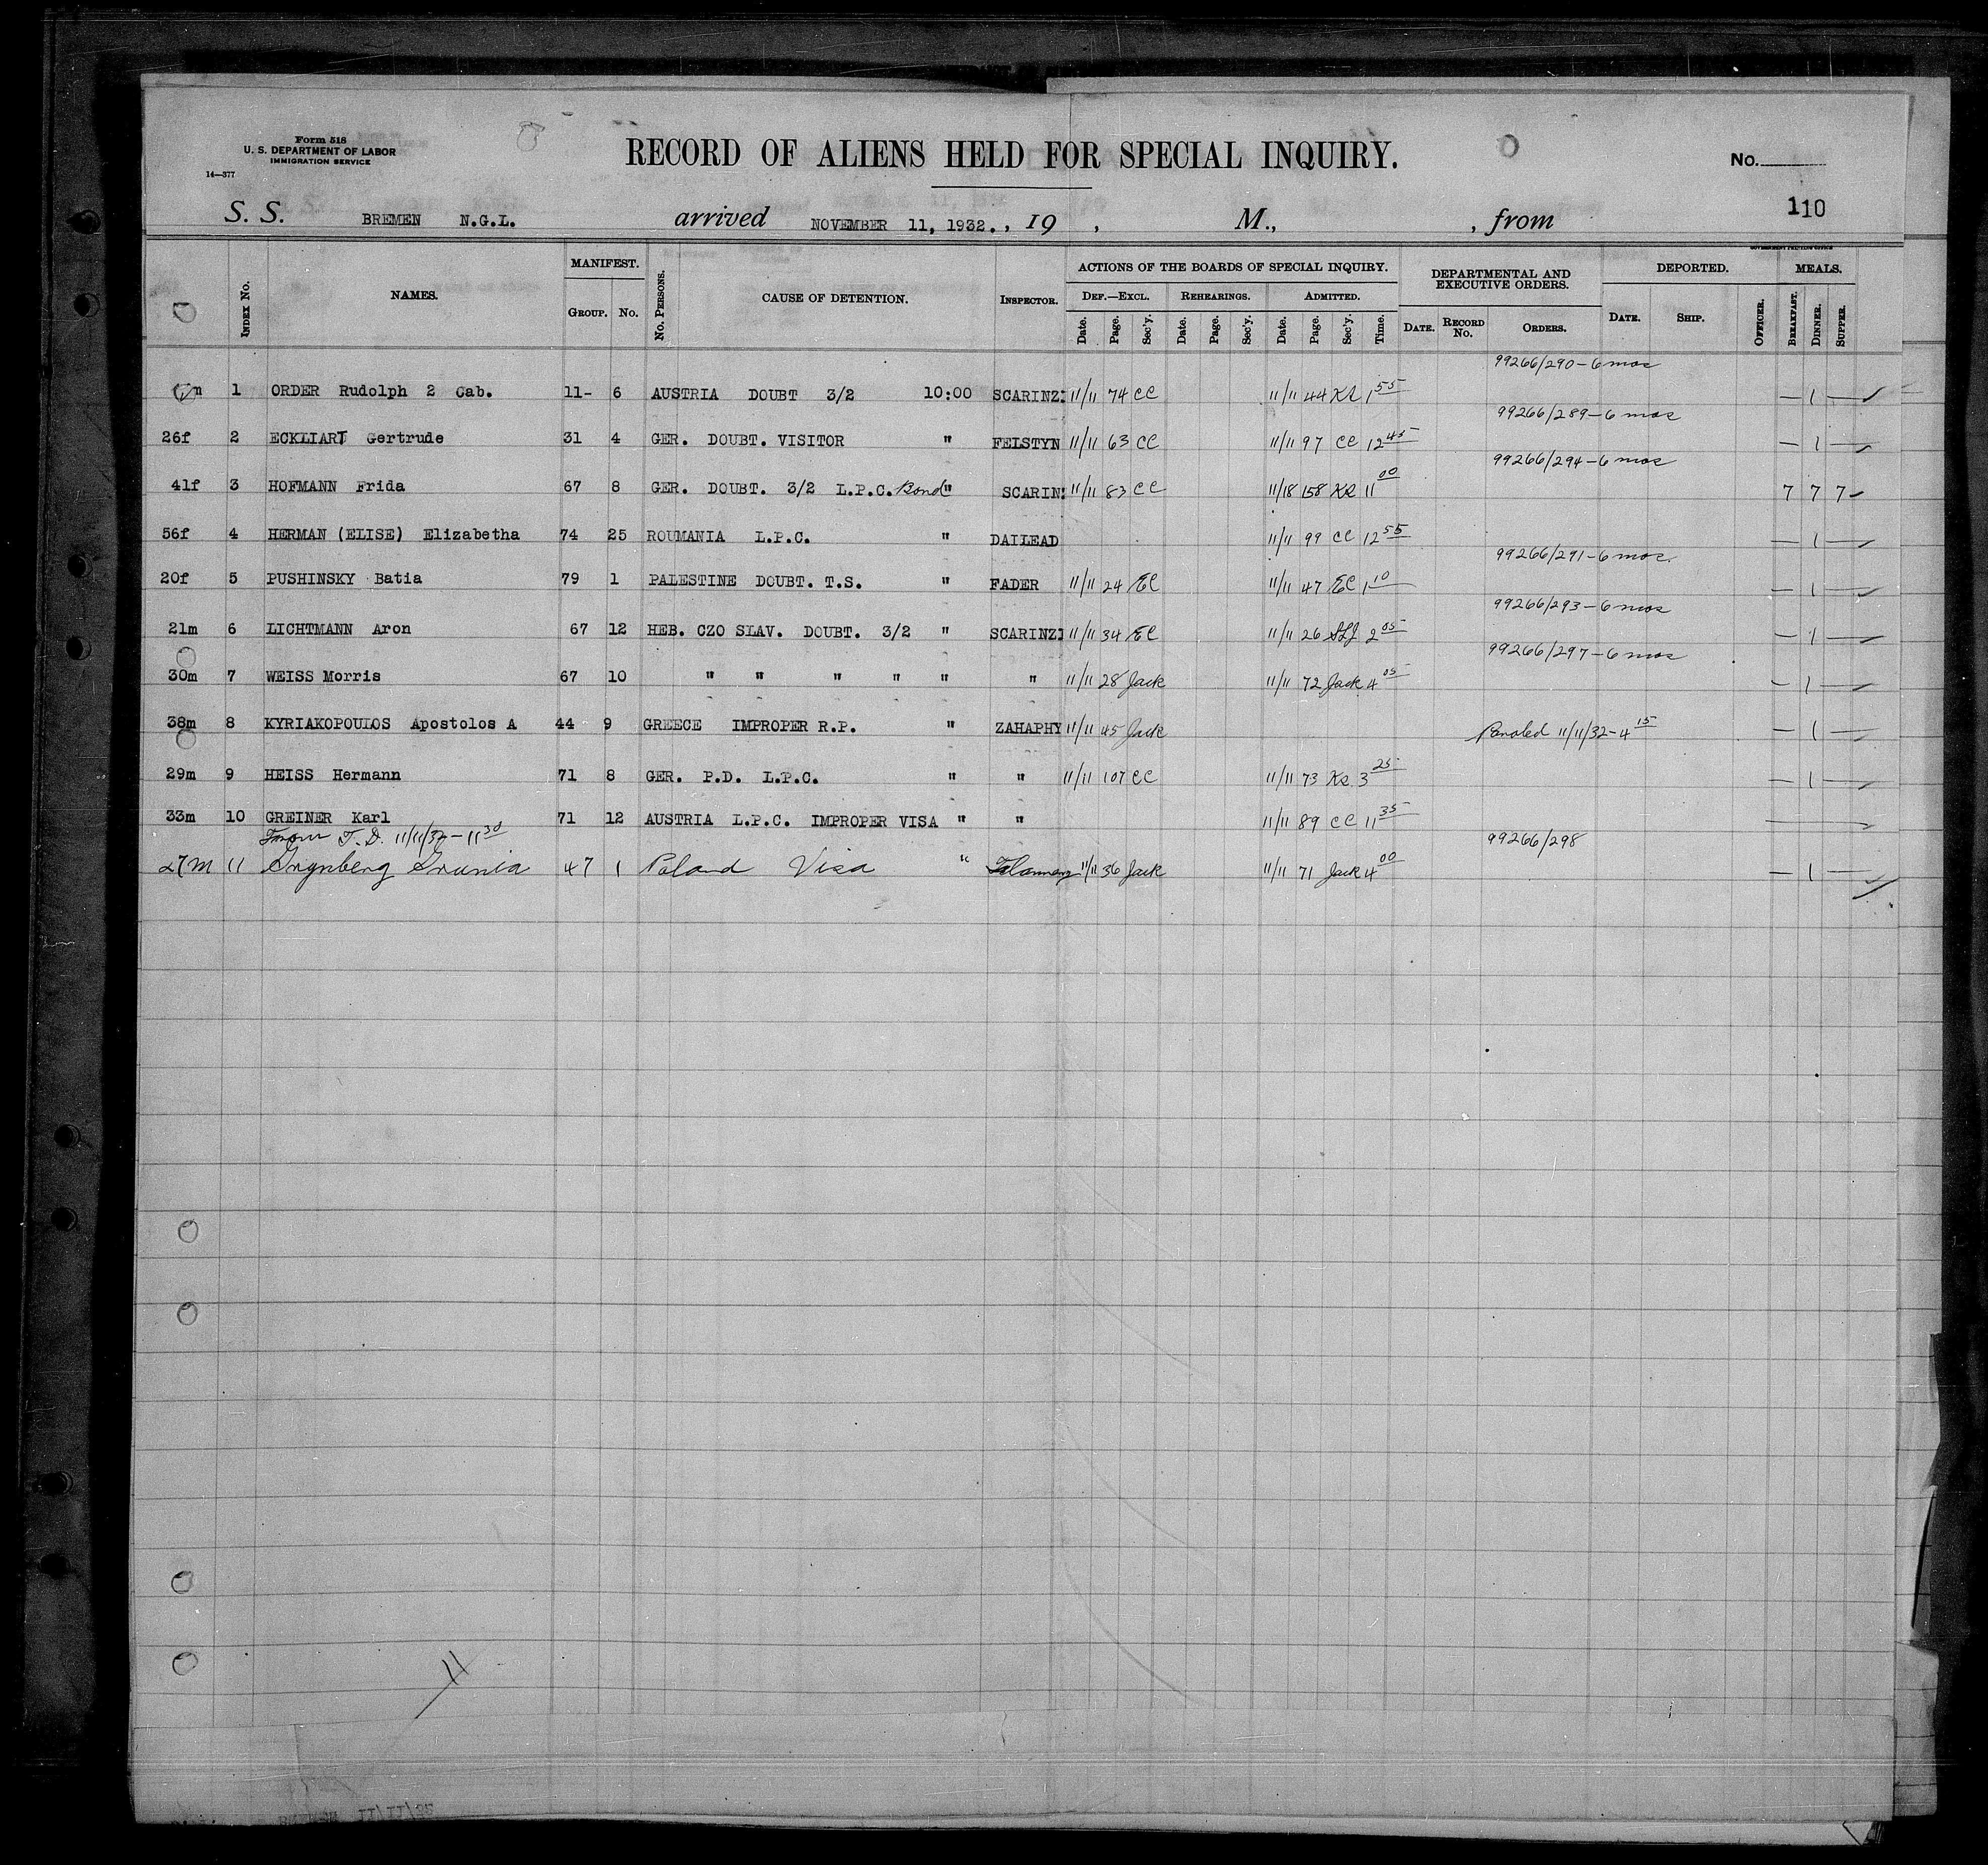 Form 518
U. S. DEPARTMENT OF LABOR
IMMIGRATION SERVICE
14—377
RECORD OF ALIENS HELD FOR SPECIAL INQUIRY.
No.
110
S. S. BREMEN N.G.L. arrived NOVEMBER 11, 1932. , 19 , M., , from
GOVERNMENT PRINTING OFFICE
INDEX No. NAMES. MANIFEST. GROUP. No. No. PERSONS. CAUSE OF DETENTION. INSPECTOR. ACTIONS OF THE BOARDS OF SPECIAL INQUIRY. DEPARTMENTAL AND EXECUTIVE ORDERS. DEPORTED. MEALS.
DEF.—EXCL. REHEARINGS. ADMITTED.
Date. Page. Sec'y. Date. Page. Sec'y. Date. Page. Sec'y. Time. DATE. RECORD No. ORDERS. DATE. SHIP. OFFICER. BREAKFAST. DINNER. SUPPER.
99266/290-6 mos
1 ORDER Rudolph 2 Cab. 11- 6 AUSTRIA DOUBT 3/2 10:00 SCARINZI 11/11 74 CC 11/11 44 KR 1 55 — 1 —
99266/289-6 mos
26f 2 ECKLIART Gertrude 31 4 GER. DOUBT. VISITOR " FELSTYN 11/11 63 CC 11/11 97 CC 12 45 — 1 —
99266/294-6 mos
41f 3 HOFMANN Frida 67 8 GER. DOUBT. 3/2 L.P.C. Bond " SCARINZ 11/11 83 CC 11/18 158 KR 11 00 7 7 7
56f 4 HERMAN (ELISE) Elizabetha 74 25 ROUMANIA L.P.C. " DAILEAD 11/11 99 CC 12 55 — 1 —
99266/291-6 mos.
20f 5 PUSHINSKY Batia 79 1 PALESTINE DOUBT. T.S. " FADER 11/11 24 EC 11/11 47 EC 1 10 — 1 —
99266/293-6 mos
21m 6 LICHTMANN Aron 67 12 HEB. CZO SLAV. DOUBT. 3/2 " SCARINZI 11/11 34 EC 11/11 26 2 05 — 1 —
99266/297-6 mos
30m 7 WEISS Morris 67 10 " " " " " " 11/11 28 Jack 11/11 72 Jack 4 05 — 1 —
38m 8 KYRIAKOPOULOS Apostolos A 44 9 GREECE IMPROPER R.P. " ZAHAPHY 11/11 45 Jack Paroled 11/11/32-4 15 — 1 —
29m 9 HEISS Hermann 71 8 GER. P.D. L.P.C. " " 11/11 107 CC 11/11 73 KR 3 25 — 1 —
33m 10 GREINER Karl 71 12 AUSTRIA L.P.C. IMPROPER VISA " " 11/11 89 CC 11 35
From T.D. 11/11/32-11 30 99266/298
27m 11 Grynberg Grunia 47 1 Poland Visa " 11/11 36 Jack 11/11 71 Jack 4 00 — 1 —
11
BREMEN 11/11/32